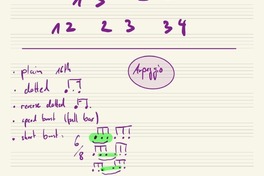 1 3
1 2 2 3 3 4
Arpeggio
• plain 16th
• dotted
• reverse dotted
• speed burst (full bar)
• short burst:
6/8